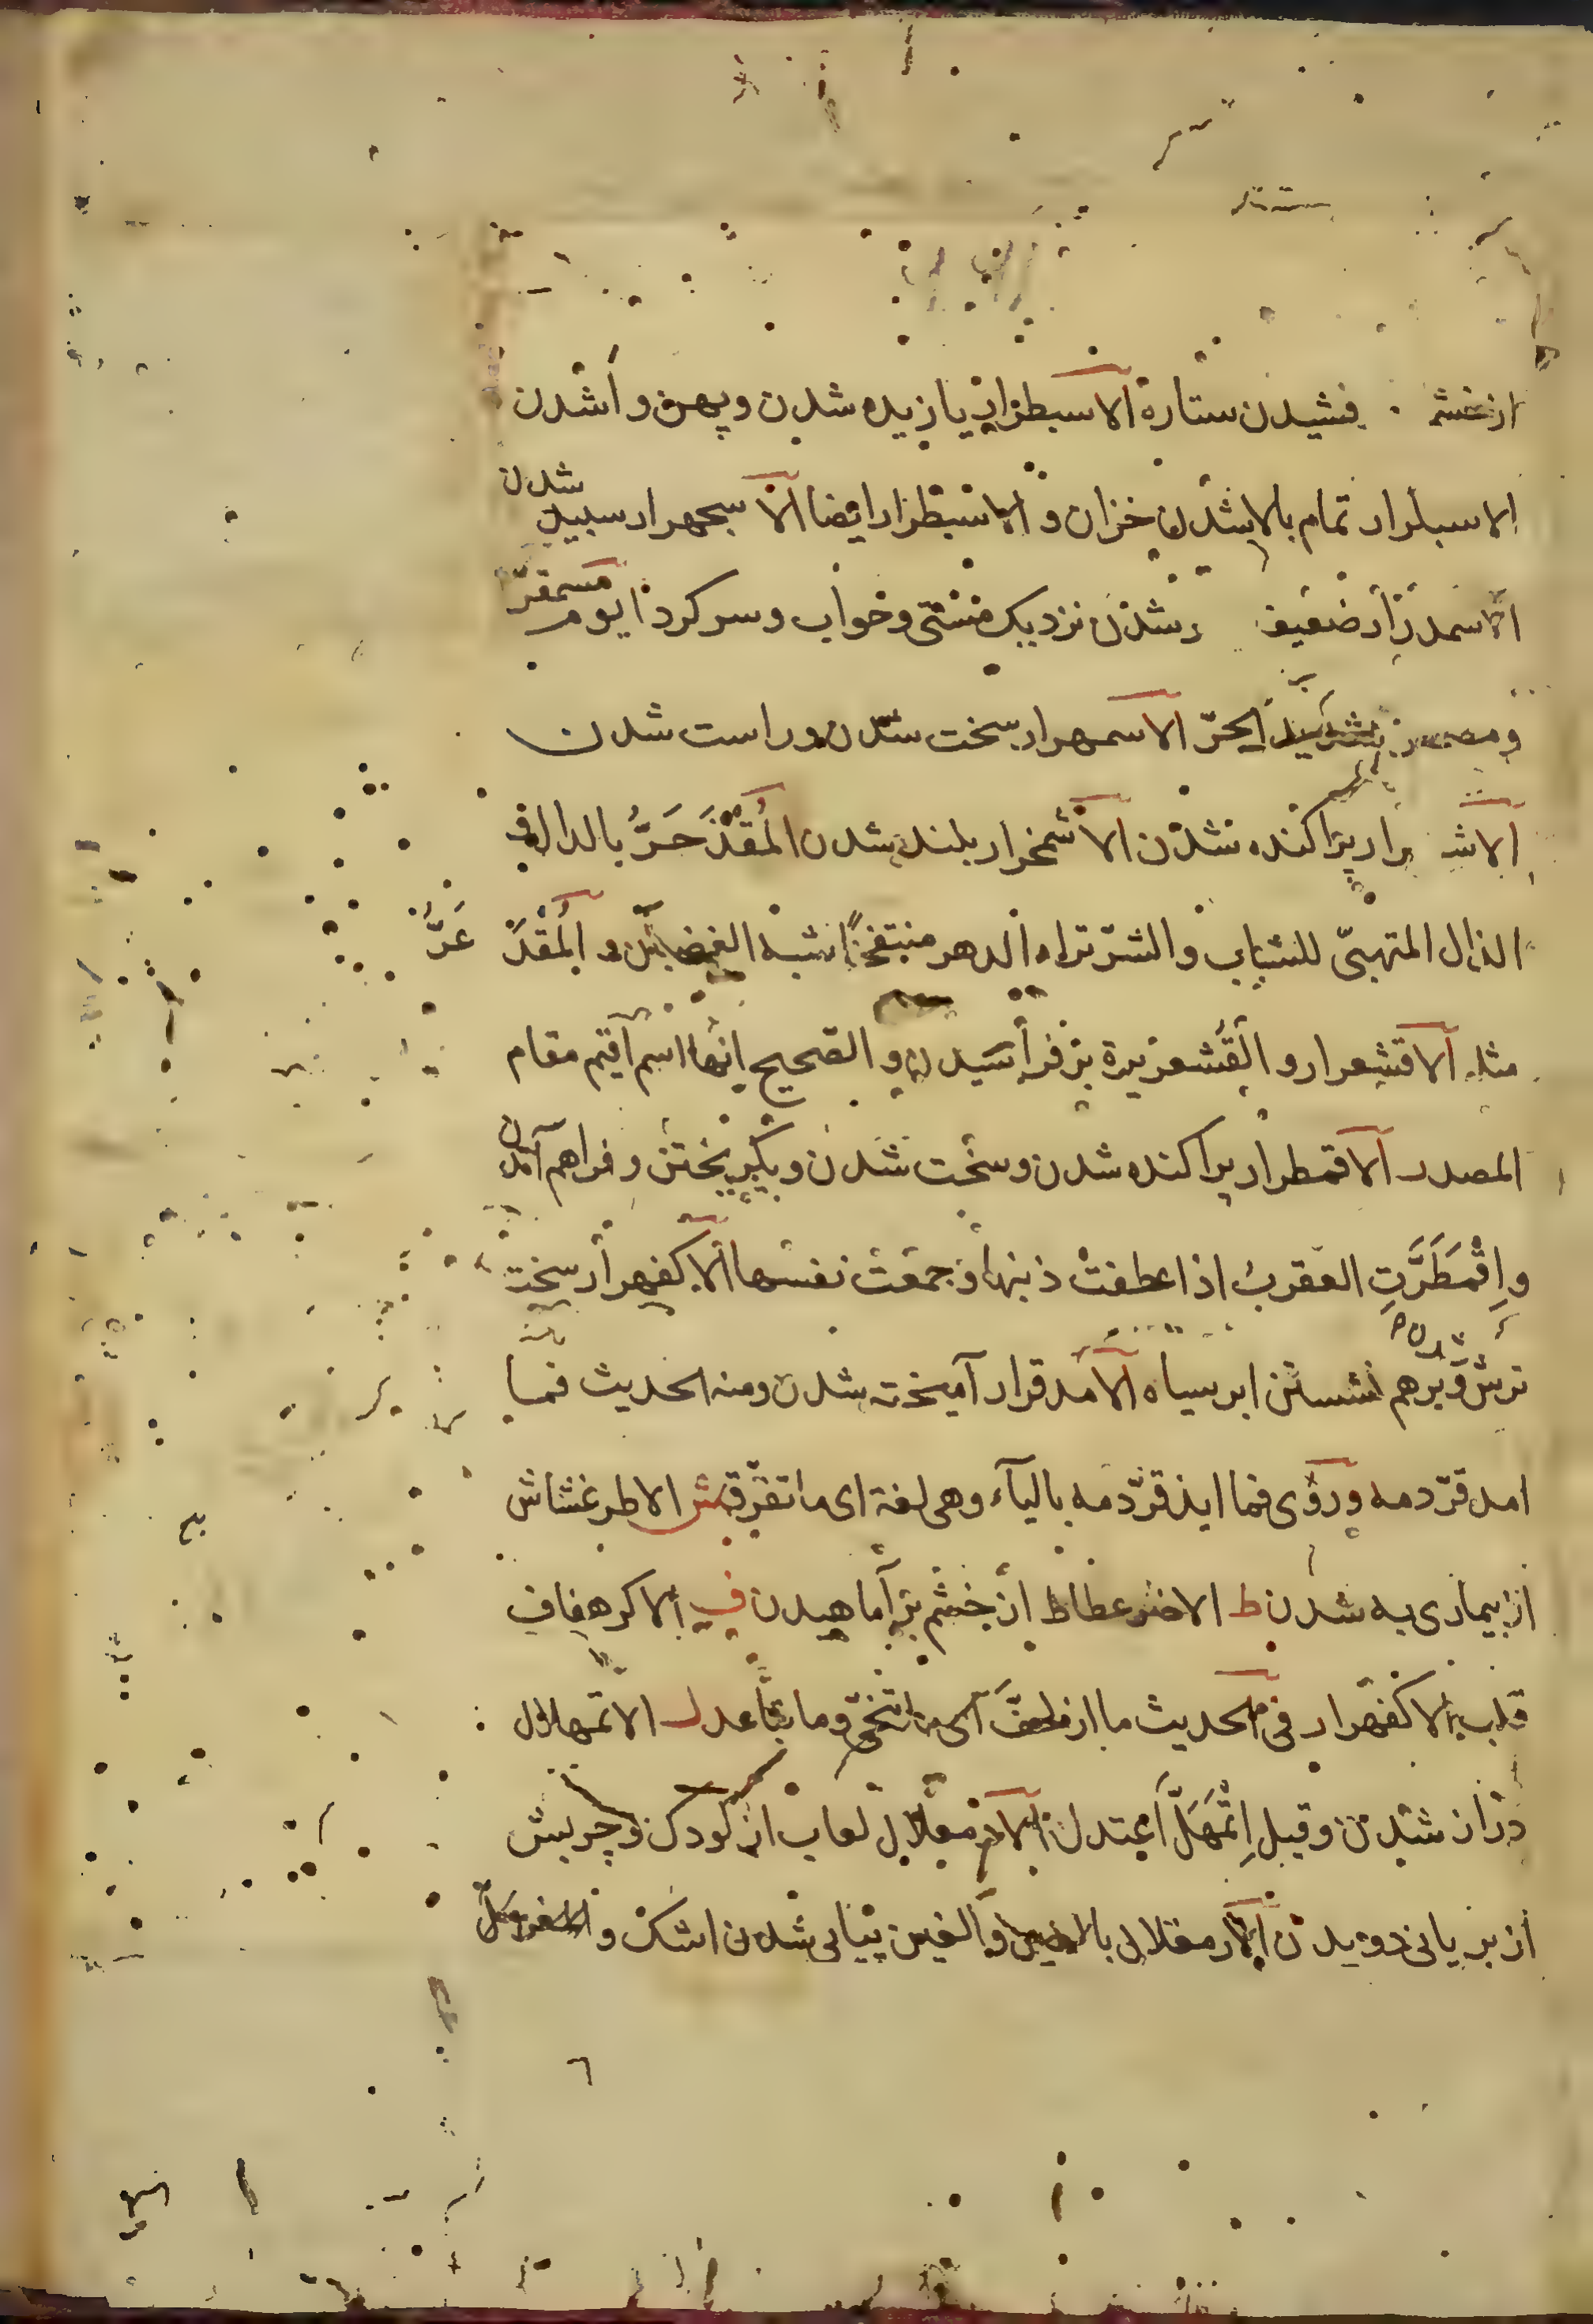 از خشم فشیدن ستارة الاسبطرار یازیده شدن و پهن واشدن
الاسبلرار تمام بالا شدن خزان و الاسبطرار ایضا الاسجهرار سبیل شدن
الاسمدرار ضعیف شدن نزدیک مستی و خواب و سر کرد ایوم مسمقرّ
و مصمقر شدید الحرّ الاسمهرار سخت شدن و راست شدن
الاش رار پراکنده شدن الاشمخرار بلند شدن المُقْذَحَرُّ بالدال و
الذال المتهیّئ للسباب والشرّ تراه الدهر منتفخًا شبه الغضبان و المُقْذَعَرُّ
مثله الاقشعرار و القُشعریرة بز فراسیدن و الصحیح انها اسم اقیم مقام
المصدر الاقمطرار پراکنده شدن و سخت شدن و بگریختن و فراهم آمدن
و اِقْمَطَرَّتِ العقربُ اذا عطفتْ ذنبها و جمعت نفسها الاکفهرار سخت
ترش و برهم نشستن ابر سیاه الامذقرار آمیخته شدن و منه الحدیث فما
امذقرّ دمه و رُوی فما ابذقرّ دمه بالباء وهی لغة ای ما تفرّق ش الاطرغشاش
از بیماری به شدن ط الاضرغطاط از خشم بر آماهیدن ف الاکرهفاف
قلب الاکفهرار فی الحدیث ما ازلحفَّ ای ما تنحّی و ما تباعد ل الاتمهلال
دراز شدن و قیل اِتْمَهَلَّ اعتدل الارمعلال لعاب از کودک و چربش
از بریانی دویدن الارمغلال بالعین والغین پیاپی شدن اشک و